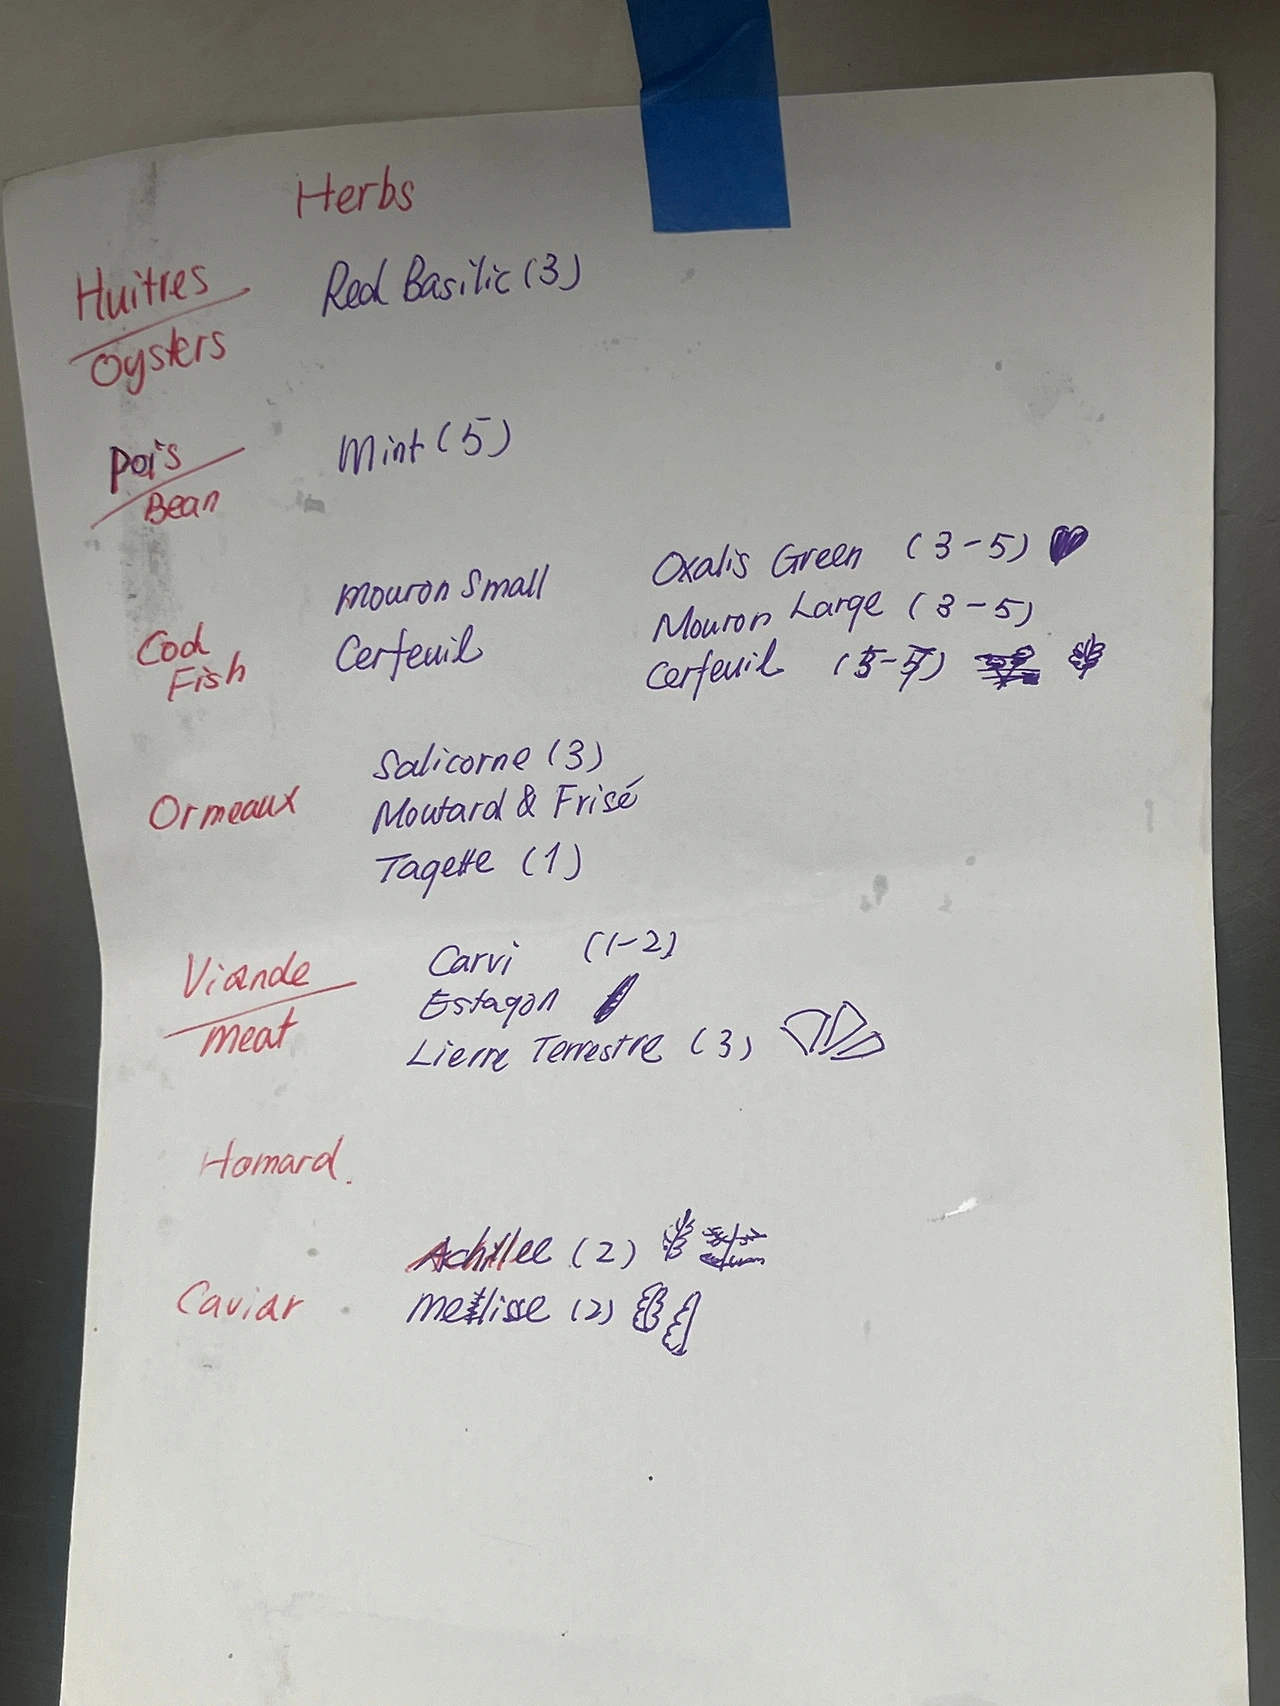 Herbs
Huitres Red Basilic (3)
Oysters
Pois Mint (5)
Bean
Oxalis Green (3-5)
Mouron Small Mouron Large (3-5)
Cod Cerfeuil Cerfeuil (5-7)
Fish
Salicorne (3)
Ormeaux Moutard & Frisé
Tagette (1)
Viande Carvi (1-2)
meat Estagon
Lierre Terrestre (3)
Homard.
Achillee (2)
Caviar Melisse (2)